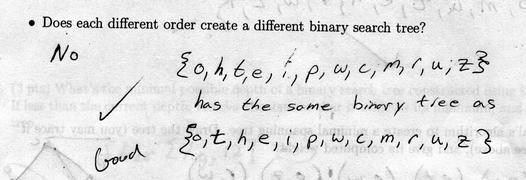 • Does each different order create a different binary search tree?
No
{o, h, t, e, i, p, w, c, m, r, u, z}
has the same binary tree as
{o, t, h, e, i, p, w, c, m, r, u, z}
Good